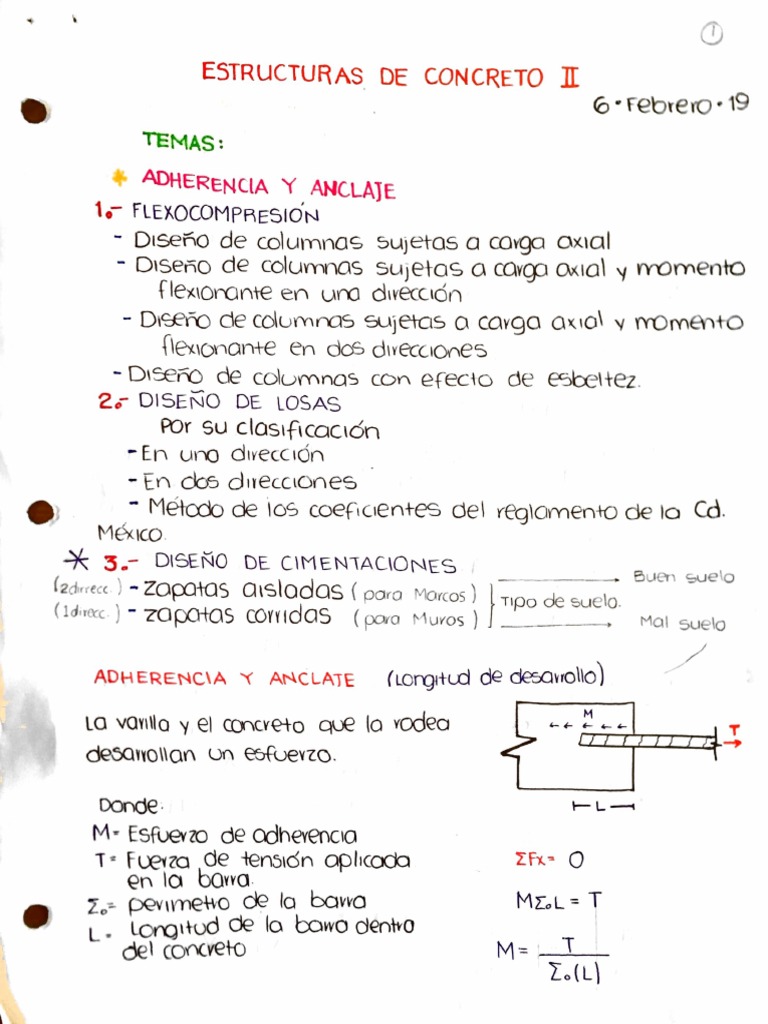 1
ESTRUCTURAS DE CONCRETO II
6·Febrero·19
TEMAS:
* ADHERENCIA Y ANCLAJE
1.- FLEXOCOMPRESIÓN
- Diseño de columnas sujetas a carga axial
- Diseño de columnas sujetas a carga axial y momento
flexionante en una dirección
- Diseño de columnas sujetas a carga axial y momento
flexionante en dos direcciones
- Diseño de columnas con efecto de esbeltez.
2.- DISEÑO DE LOSAS
Por su clasificación
- En una dirección
- En dos direcciones
- Método de los coeficientes del reglamento de la Cd.
México.
* 3.- DISEÑO DE CIMENTACIONES
(2dirrecc.) - Zapatas aisladas (para Marcos) → Buen suelo
Tipo de suelo.
(1direcc.) - Zapatas corridas (para Muros) → Mal suelo
ADHERENCIA Y ANCLATE (Longitud de desarrollo)
La varilla y el concreto que la rodea
desarrollan un esfuerzo.
M
T
L
Donde:
M= Esfuerzo de adherencia
T= Fuerza de tensión aplicada
en la barra.
Σo= perimetro de la barra
L= Longitud de la barra dentro
del concreto
ΣFx= 0
MΣoL = T
M= T
Σo(L)